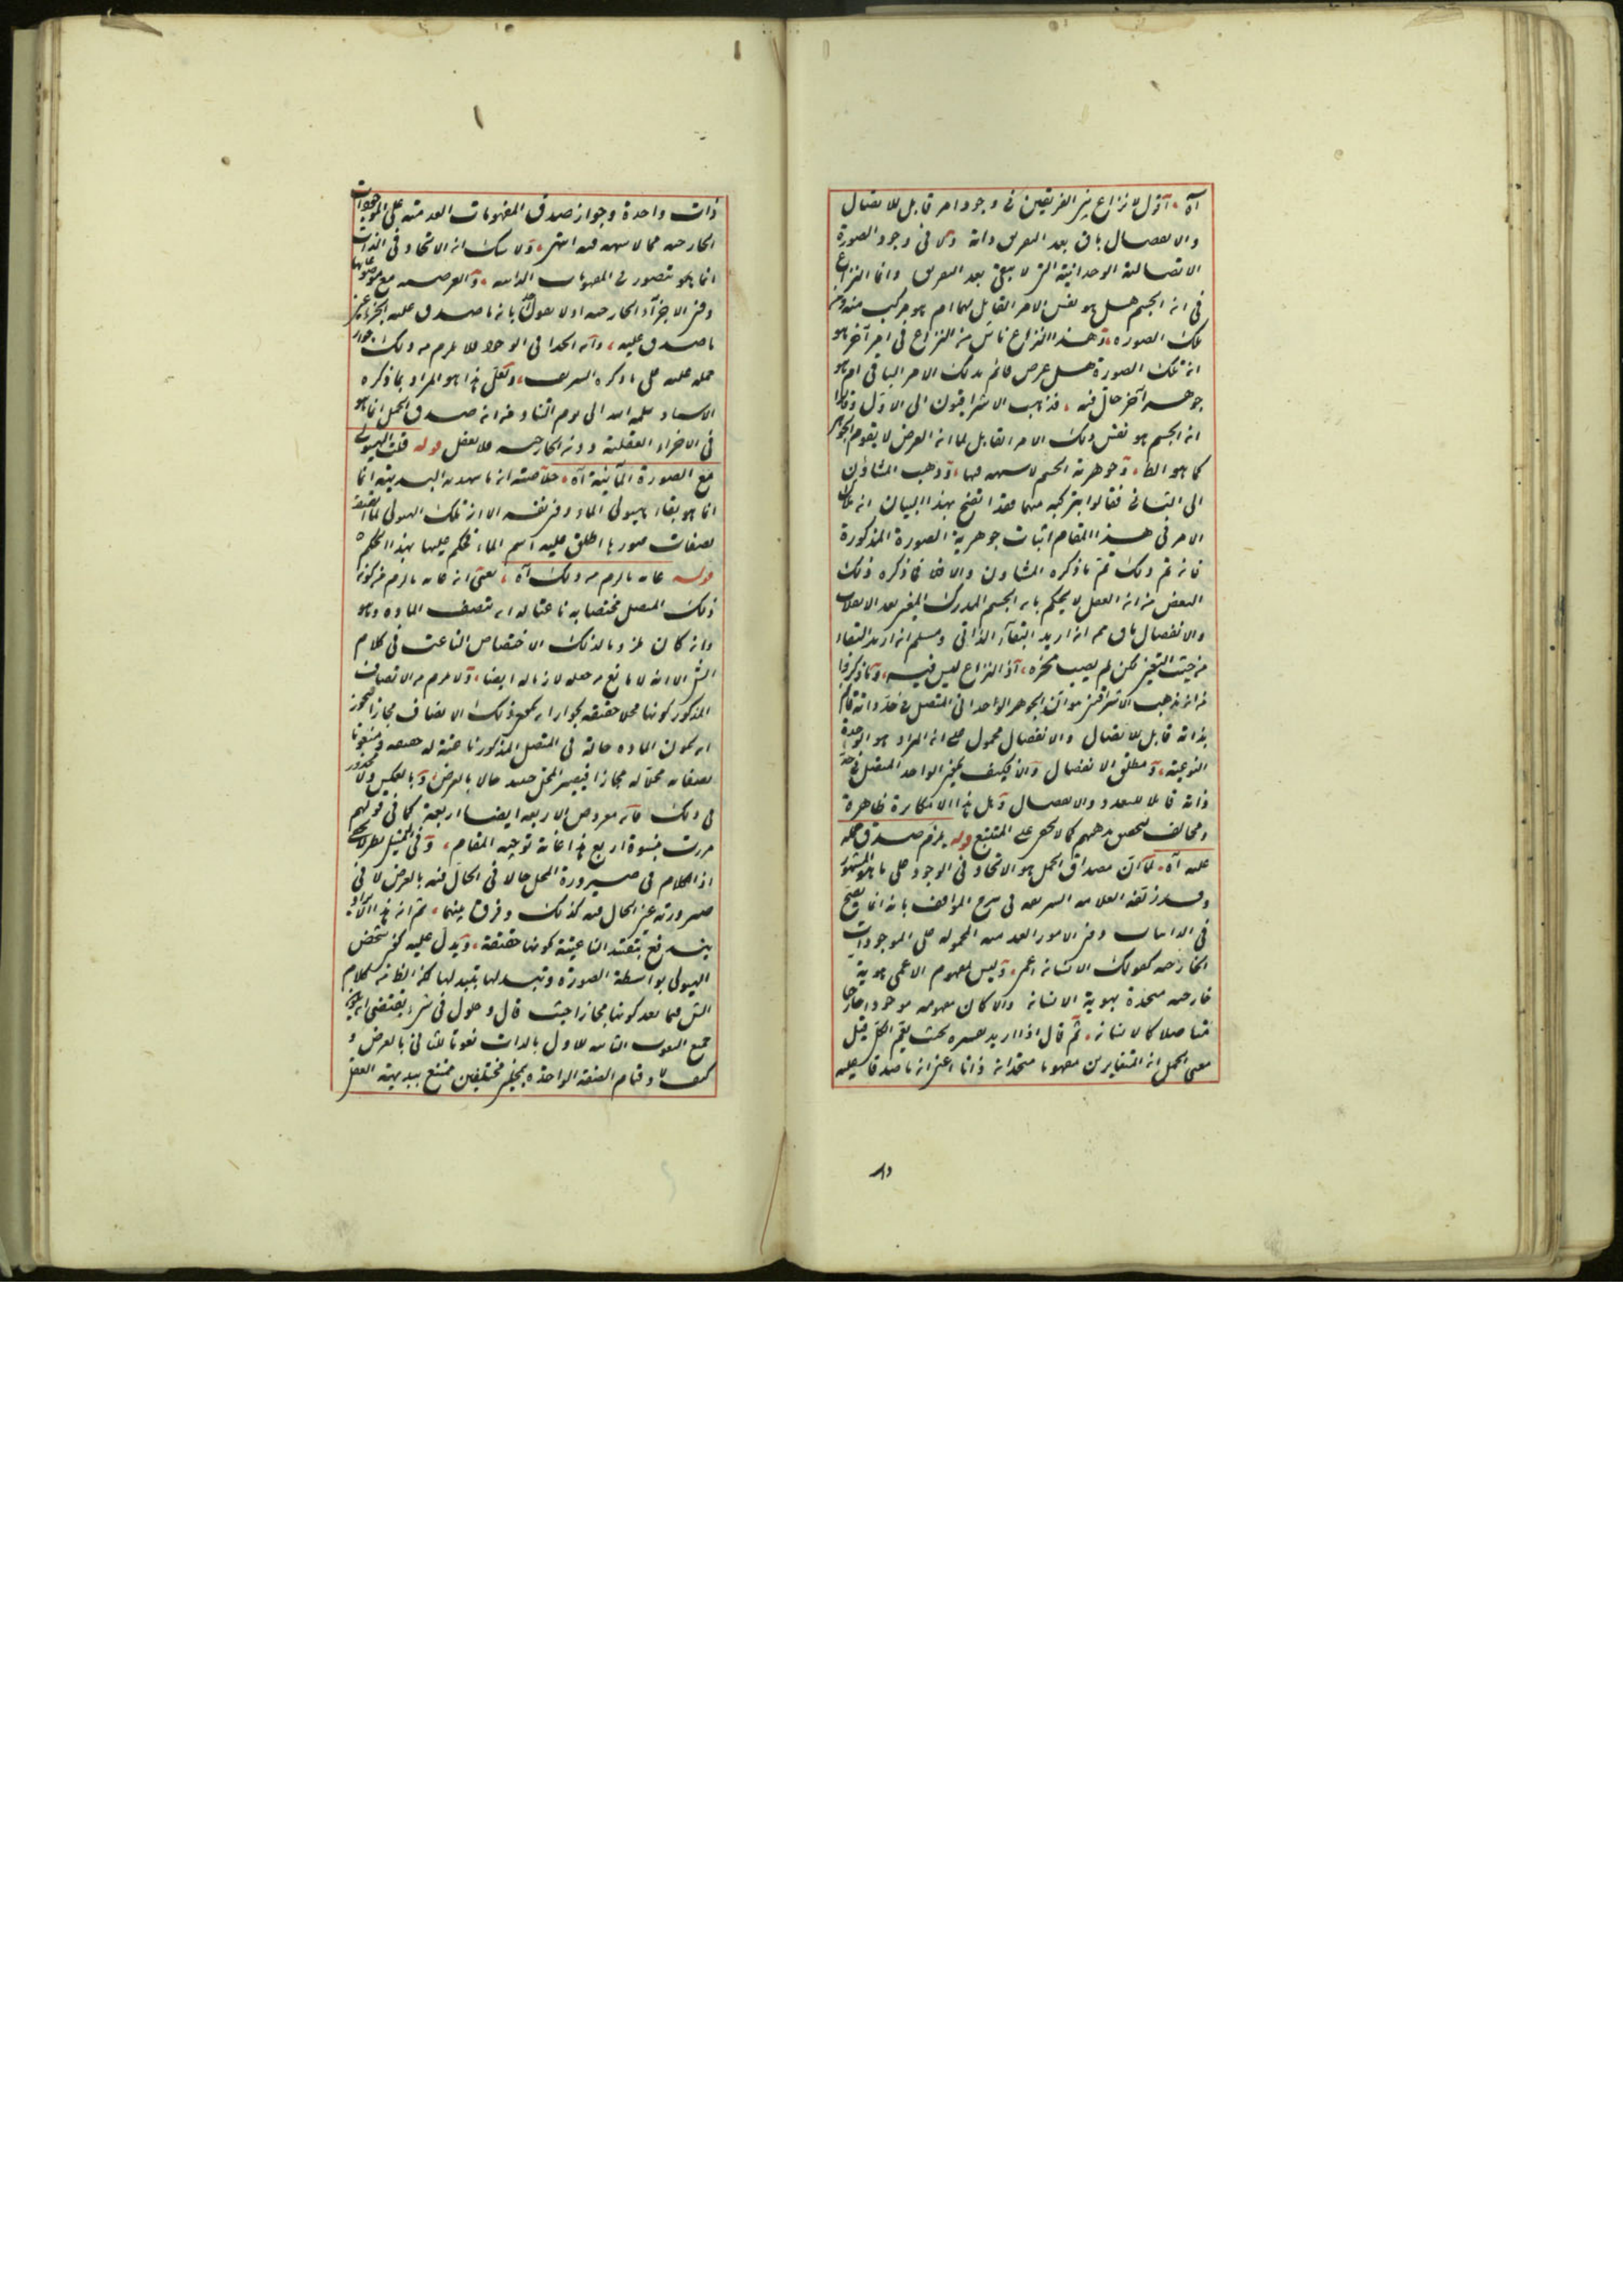 آه اقول لا نزاع بين الفريقين فى وجود امر قابل للاتصال
والانفصال باق بعد التفريق ذاته ولا فى وجود الصورة
الاتصالية الوحدانية التى لا يبقى بعد التفريق وانما النزاع
فى ان الجسم هل هو نفس الامر القابل لهما ام هو مركب منه ومن
تلك الصورة وهذا النزاع ناش من النزاع فى امر آخر هو
ان تلك الصورة هل عرض قائم بذلك الامر الباقى ام هو
جوهر آخر حال فيه فذهب الاشراقيون الى الاول وقالوا
ان الجسم هو نفس ذلك الامر القابل لما ان العرض لا يقوم الجوهر
كما هو الظ وجوهرية الجسم لا شبهة فيها وذهب المشاؤن
الى الثانى فقالوا بتركبه منهما فقد اتضح بهذا البيان ان ملاك
الامر فى هذا المقام اثبات جوهرية الصورة المذكورة
فان تم ذلك تم ما ذكره المشاؤن والا فلا فما ذكره ذلك
البعض من ان العقل لا يحكم بان الجسم المدرك المعين بعد الانفصال
والانفصال باق مم ان اريد البقاء الذاتى ومسلم ان اريد البقاء
من حيث التعين لكن لم يصب محزه اذ النزاع ليس فيه وما ذكروا
من ان مذهب الاشراقيين هو ان الجوهر الواحدانى المتصل فى حد ذاته قائم
بذاته قابل للاتصال والانفصال محمول على ان المراد هو الوحدة
النوعية ومطلق الانفصال والا فكيف يكون الواحد المتصل فى حد
ذاته قابلا للتعدد والانفصال وهل هذا الا مكابرة ظاهرة
ومخالف لتحصيل مذهبهم كما لا يخفى على المتتبع قوله يلزم صدق حمله
عليه آه لما كان مصداق الحمل هو الاتحاد فى الوجود على ما هو المشهور
وقد زيفه العلامة الشريف فى شرح المواقف بانه انما يصح
فى الذاتيات دون الامور العدمية المحمولة على الموجودات
الخارجية كقولك الانسان اعمى وليس لمفهوم الاعمى هوية
خارجية متحدة بهوية الانسان والا كان مفهومه موجودا خارجيا
متاصلا كالانسان ثم قال اذا اريد تفسيره بحيث يعم الكل قيل
معنى الحمل ان المتغايرين مفهوما متحدان ذاتا اعنى ان ما صدقا عليه
ذات واحدة وجواز صدق المفهومات العدمية على الموجودات
الخارجية مما لا شبهة فيه انتهى ولا شك ان الاتحاد فى الذات
انما هو متصور فى المفهومات الذاتية والعرضية مع موضوعاتها
دون الاجزاء الخارجية اذ لا يقول بان ما صدق عليه الجزء عين
ما صدق عليه وان اتحدا فى الوجود فلا يلزم من ذلك جواز
حمله عليه على ما ذكره الشريف ولعل هذا هو المراد بما ذكره
الاستاد سلمه الله الى يوم التناد من ان صدق الحمل انما هو
فى الاجزاء العقلية دون الخارجية فلا تغفل قوله قلت الهيولى
مع الصورة المائية آه خلاصته ان ما شهد به البديهة انما
انما هو بقاء هيولى الماء دون نفسه الا ان تلك الهيولى لما اتصفت
بصفات صورها اطلق عليه اسم الماء فحكم عليها بهذا الحكم
قوله غاية ما لزم من ذلك آه يعنى ان غاية ما لزم من كون
ذلك المتصل مختصا به ناعتا له ان يتصف المادة وهو
وان كان ملزوما لذلك الاختصاص الناعت فى كلام
الش الا انه لا مانع من جعله لازما له ايضا ولا يلزم من الاتصاف
المذكور كونها محلا حقيقة لجواز ان يكون ذلك الاتصاف مجازا لتجوز
ان يكون المادة حالة فى المتصل المذكور ناعتة له حقيقة ومنعوتا
بصفاته محلا له مجازا فيصير المحل حينئذ حالا بالعرض وبالعكس ولا محذور
فى ذلك فان معروض الاربعة ايضا اربعة كما فى قولهم
مررت بنسوة اربع هذا غاية توجيه المقام وفى التمثيل نظر لا يخفى
اذ الكلام فى صيرورة المحل حالا فى الحال فيه بالعرض لا فى
صيرورته عين الحال فيه كذلك وفرق بينهما ثم ان هذا الايراد
يندفع بتقييد الناعتية كونها حقيقة ويدل عليه كون تشخص
الهيولى بواسطة الصورة وتبدلها بتبدلها لكن الظ من كلام
الش فيما بعد كونها مجازا حيث قال وحلول شىء فى شىء يقتضى ان يكون
جميع النعوت الثابتة للاول بالذات نعوتا للثانى بالعرض و
كيف لا وقيام الصفة الواحدة بمحلين مختلفين ممتنع ببديهة العقل